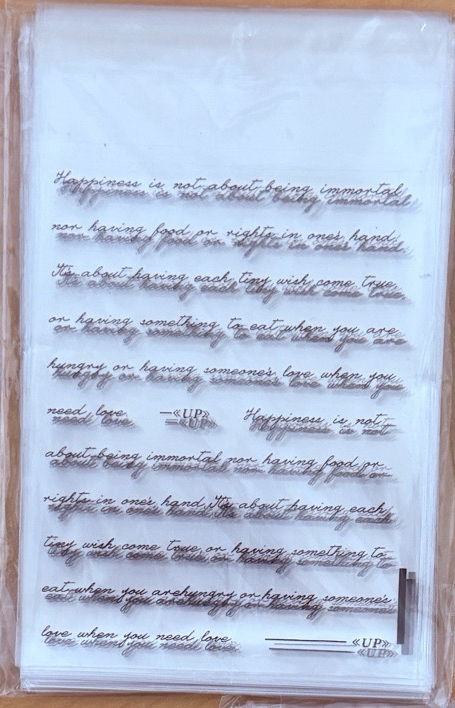 Happiness is not about being immortal
nor having food or rights in one's hand.
It's about having each tiny wish come true,
or having something to eat when you are
hungry or having someone's love when you
need love. —《UP》 Happiness is not
about being immortal nor having food or
rights in one's hand. It's about having each
tiny wish come true, or having something to
eat when you arehungry or having someone's
love when you need love. ——《UP》